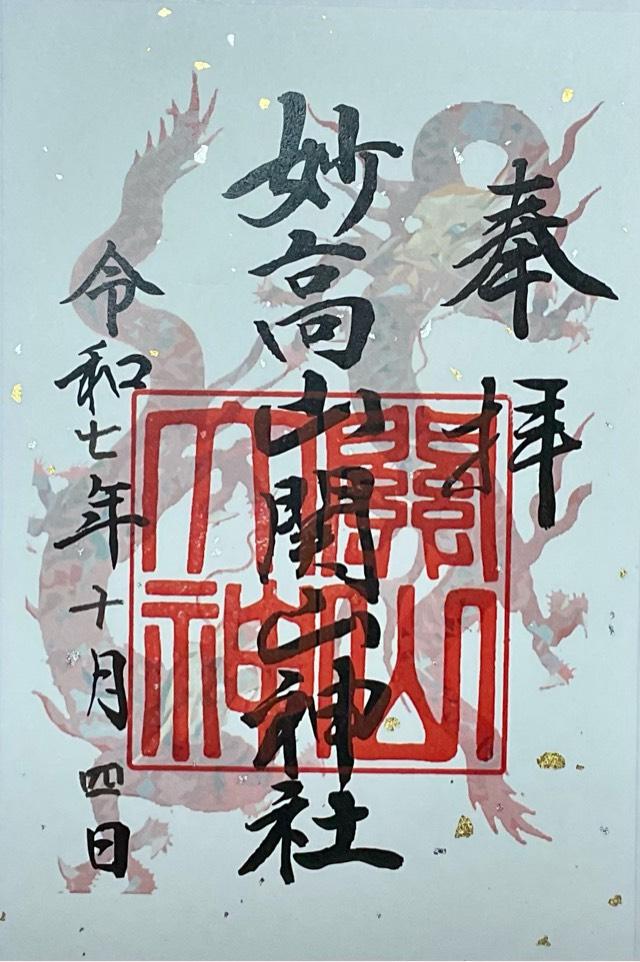 奉拝
妙高山関山神社
令和七年十月四日
關山大神